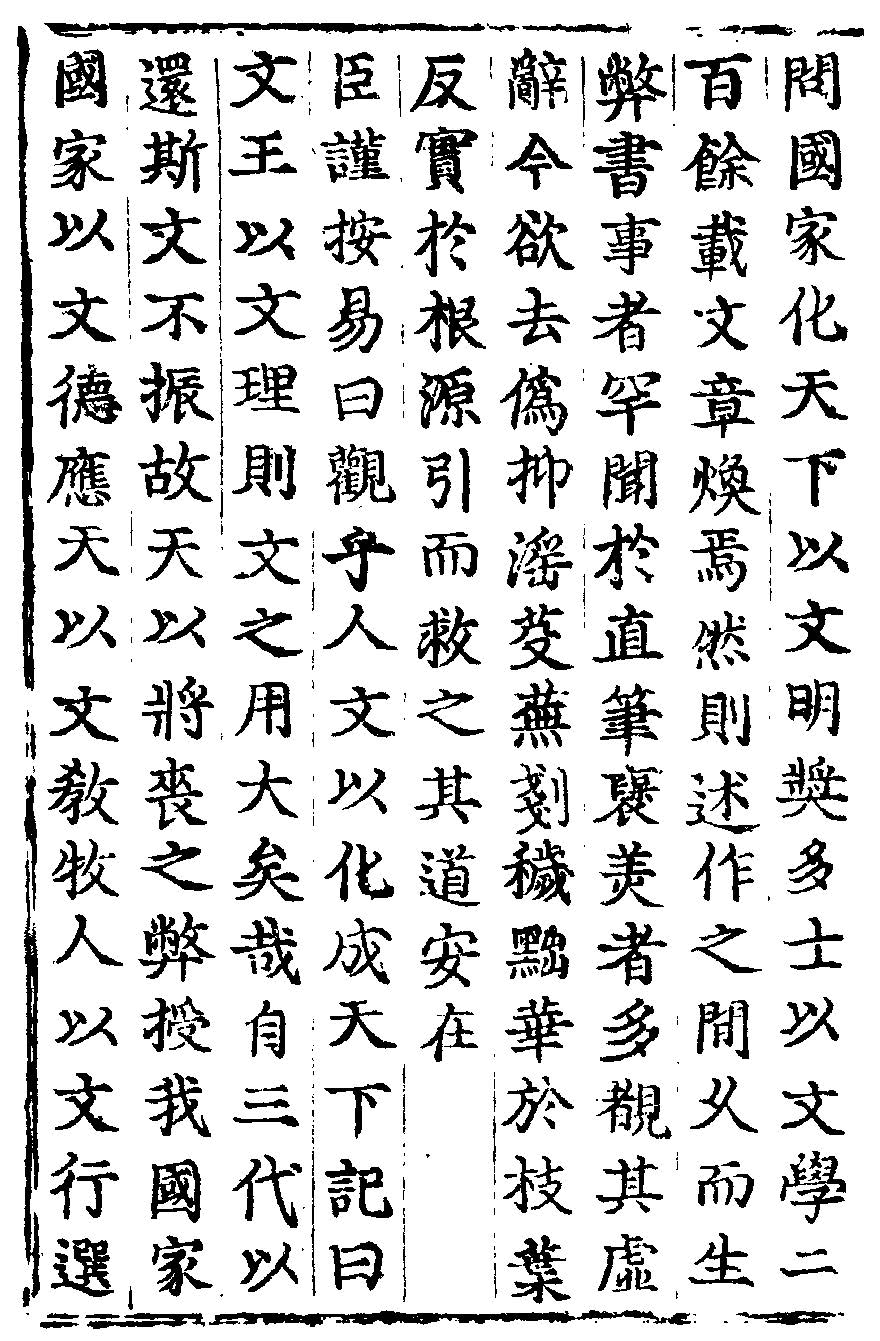 問國家化天下以文明奬多士以文學二
百餘載文章煥焉然則述作之間久而生
弊書事者罕聞於直筆襃羙者多覩其虛
辭今欲去僞抑滛芟蕪剗穢黜華於枝葉
反實於根源引而救之其道安在
臣謹按易曰觀乎人文以化成天下記曰
文王以文理則文之用大矣哉自三代以
還斯文不振故天以將喪之弊授我國家
國家以文德應天以文教牧人以文行選